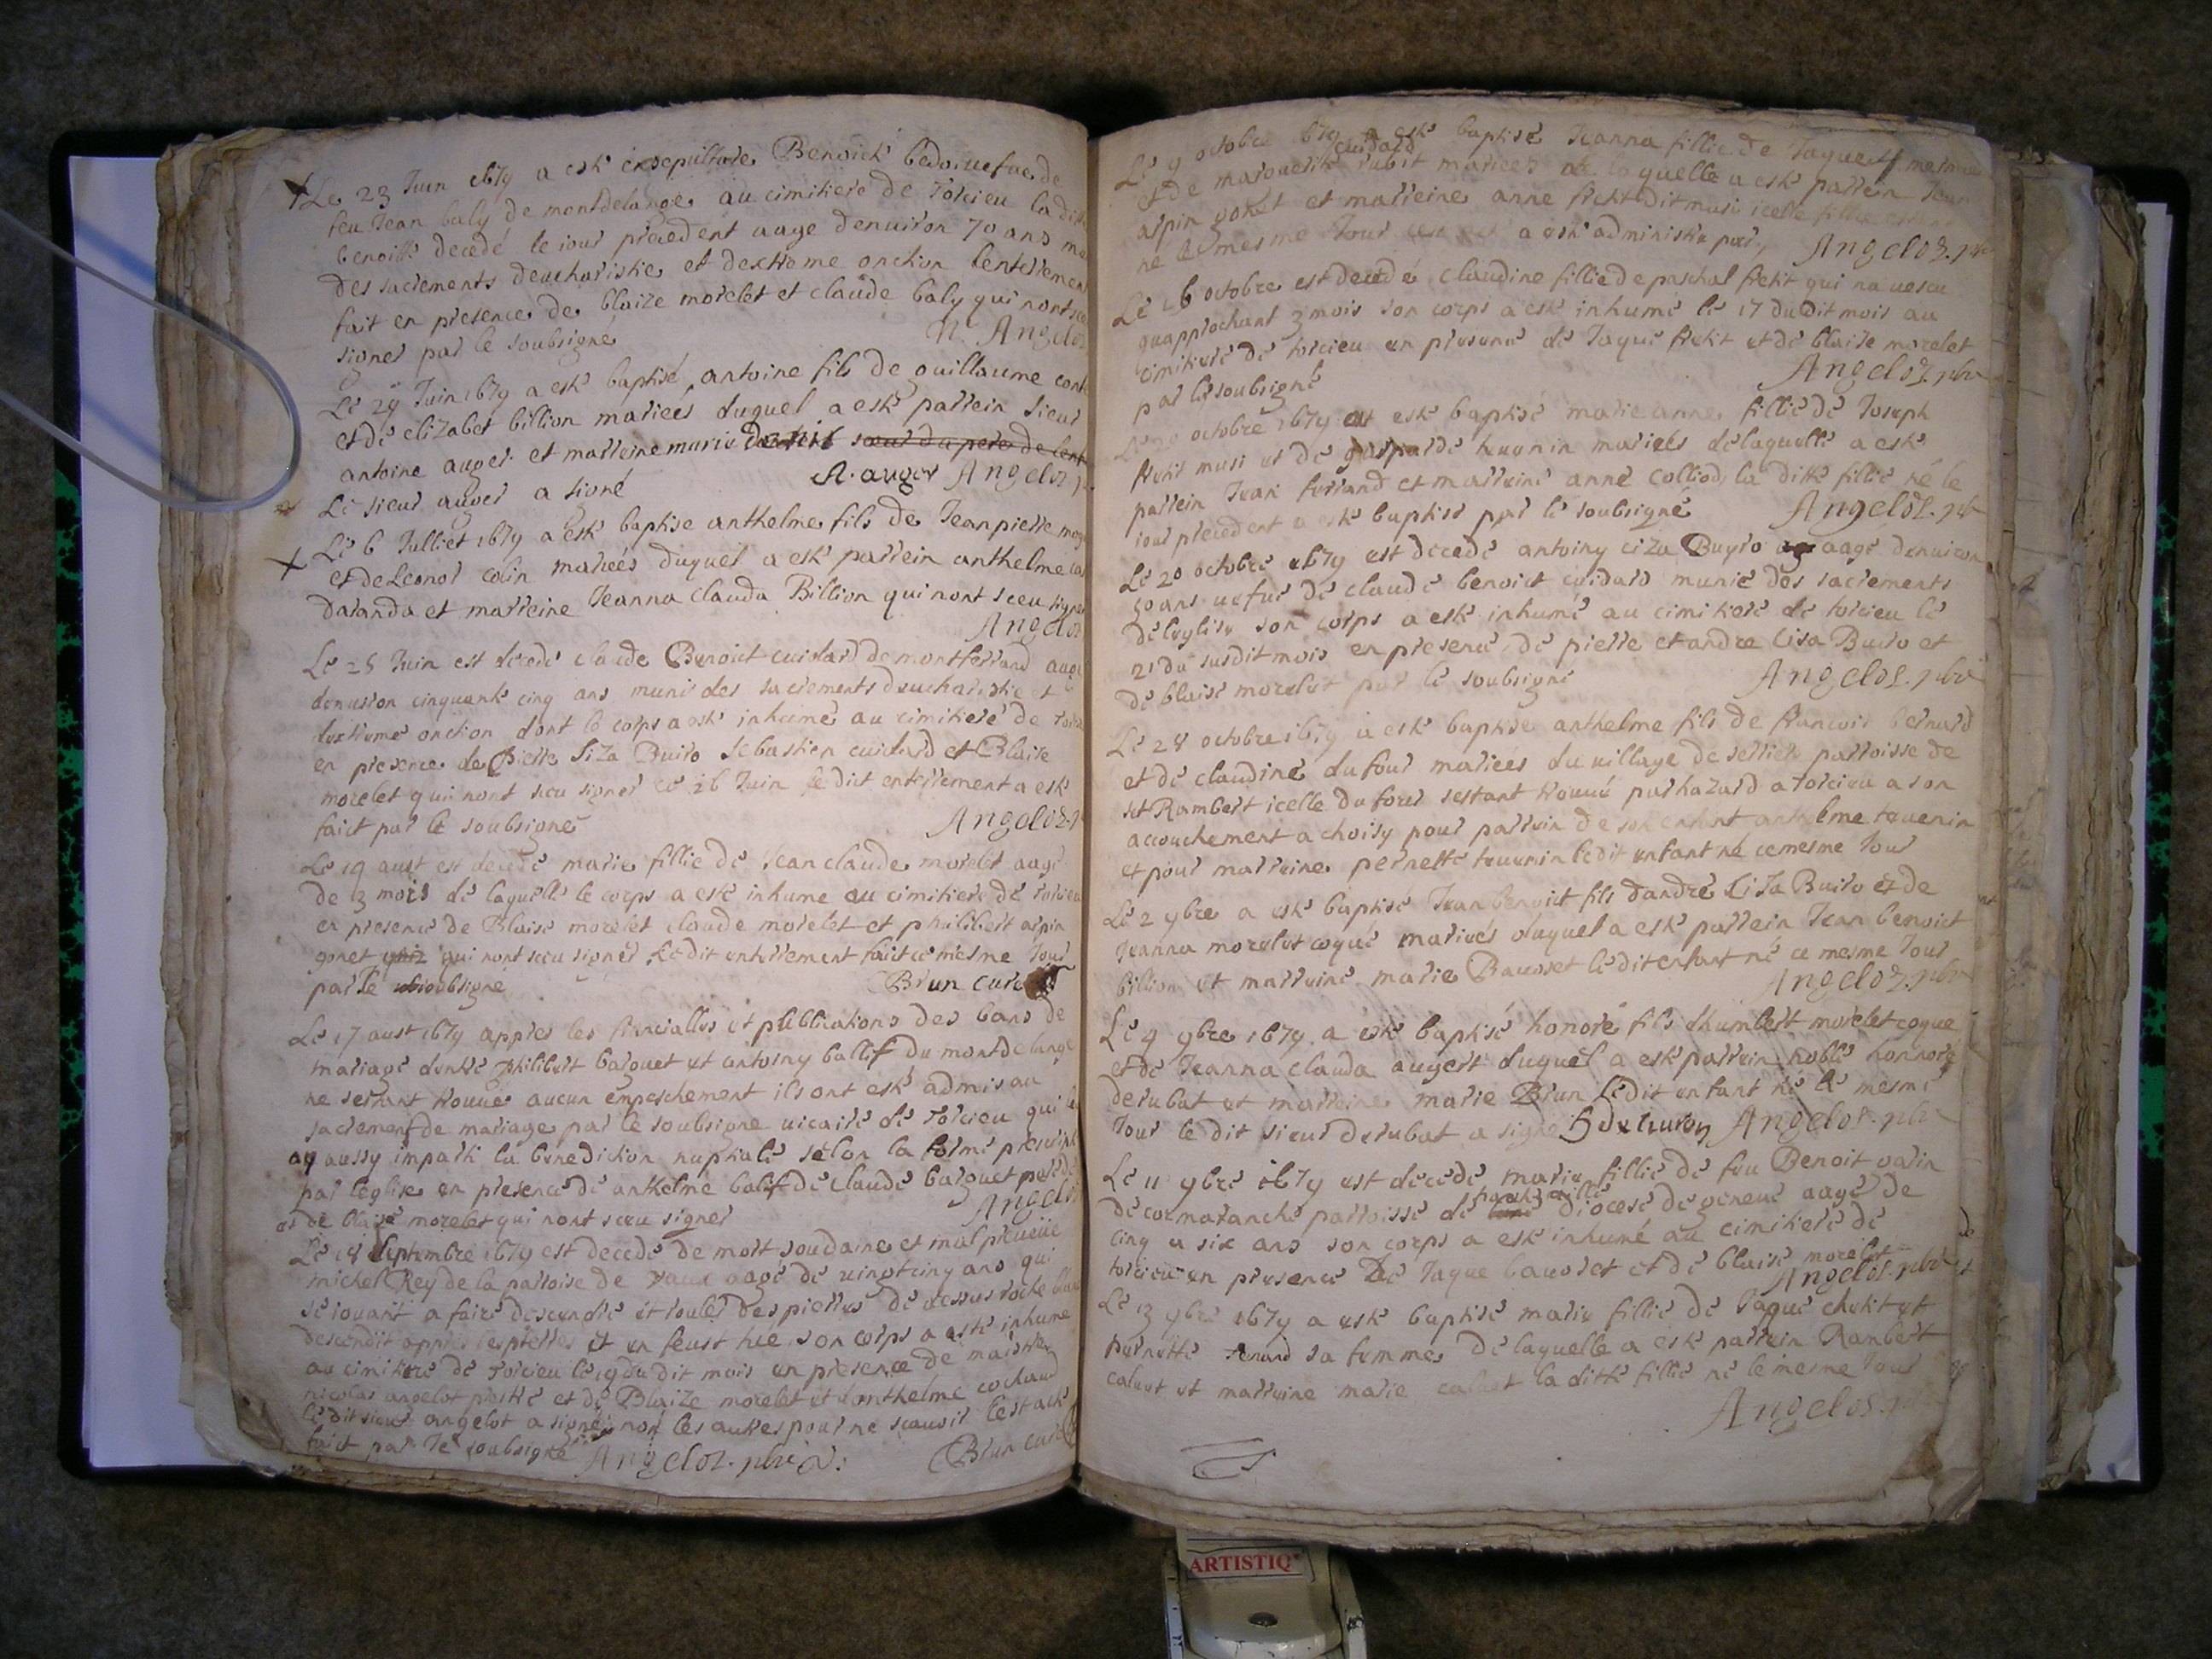 Le 23 Juin 1679 a esté ensepulture Benoick bedo uefue de
feu Jean baly de montdelange au cimitiere de torcieu la ditte
benoitte decedé le iour precedent aage denuiron 70 ans
des sacrements deucharistie et dextrome onction lenterrement
fait en presence de blaize morelet et claude baly qui nont sceu
signer par le soubsigné
N. Angeloz
Le 29 Juin 1679 a esté baptisé antoine fils de guillaume
et de elizabet billion mariees duquel a esté parrein sieur
antoine auger et marreine marie soeur du pere de
Le sieur auger a signé A. auger Angeloz
Le 6 Julliet 1679 a esté baptise anthelme fils de Jean pierre
et de Leonor colin mariés duquel a esté parrein anthelme
daranda et marreine Jeanna clauda Billion qui nont sceu signer
Angeloz
Le 25 Juin est decede claude Benoict cuidard de montferrand aagé
denuiron cinquante cinq ans muni des sacrements deucharistie et
dextreme onction dont le corps a esté inhumé au cimitiere de torcieu
en presence de Pierre Siza Buiro Sebastien cuidard et Blaise
morelet qui nont sceu signer ce 26 Juin le dit enterrement a esté
faict par le soubsigné Angeloz
Le 19 aust est decede marie fillie de Jean claude morelet aagé
de 3 mois de laquelle le corps a esté inhume au cimitiere de torcieu
en presence de Blaise morelet claude morelet et philibert arpin
gonet qui nont sceu signer Ledit enterrement fait ce mesme Jour
par le soubsigne Brun curé
Le 17 aust 1679 apprés les fiancialles et publications des bans de
mariage dentre philibert barquet et antoiny ballif du montdelange
ne sestant trouué aucun empeschement ils ont esté admis au
sacrement de mariage par le soubsigne uicaire de torcieu qui
ay aussy imparti la benediction nuptiale selon la forme prescripte
par leglise en presence de anthelme balif de claude barquet pere
et de blaise morelet qui nont sceu signer Angeloz
Le 18 septembre 1679 est decede de mort soudaine et malpreueüe
michel Rey de la parroise de vaux aagé de uingtcinq ans qui
se iouant a faire descendre et rouler des pierres de dessus roche
descendit apprés les pierres et en feust tué son corps a esté inhumé
au cimitiere de torcieu le 19 du dit mois en presence de maistre
nicolas angelot prestre et de Blaize morelet et danthelme cochaud
ledit sieur angelot a signé non les autres pour ne scauoir lestacte
faict par le soubsigné Angeloz. pbre Brun curé
Le 9 octobre 1679 a esté baptisé Jeanna fillie de Jaque
et de marguerite cuidard rubit mariees de laquelle a esté parrein Jean
arpin gonet et marreine anne fretit dit musi icelle fillie
né le mesme Jour a esté administre par Angeloz. pbre
Le 16 octobre est decedé claudine fillie de paschal fretit qui na uescu
quapprochant 3 mois son corps a esté inhumé le 17 du dit mois au
cimitiere de torcieu en presence de Jaque fretit et de blaise morelet
par le soubsigné Angeloz. pbre
octobre 1679 a esté baptisé marie anne fillie de Joseph
fretit musi et de gasparde teuenin mariés de laquelle a esté
parrein Jean ferrand et marreine anne colliod la ditte fillie né le
iour precedent a esté baptisé par le soubsigné Angeloz. pbre
Le 20 octobre 1679 est decedé antoiny ciza Buyro aagé denuiron
50 ans uefue de claude benoict cuidard munie des sacrements
de leglise son corps a esté inhumé au cimitiere de torcieu le
21 du susdit mois en presence de pierre et andre cisa Buiro et
de blaise morelet par le soubsigné Angeloz. pbre
Le 28 octobre 1679 a esté baptisé anthelme fils de francois bernard
et de claudine dufour mariées du uillage de serrieres parroisse de
st Rambert icelle dufour sestant trouué par hazard a torcieu a son
accouchement a choisy pour parrein de son enfant anthelme teuenin
et pour marreine pernette teuenin ledit enfant né ce mesme Jour
Le 2 9bre a esté baptisé Jean benoict fils dandré Ciza Buiro et de
Jeanna morelet coque mariés duquel a esté parrein Jean benoict
billion et marreine marie Bauoset ledit enfant né ce mesme Jour
Angeloz. pbre
Le 9 9bre 1679 a esté baptisé honoré fils dhumbert morelet coque
et de Jeanna clauda augert duquel a esté parrein noble honnoré
derubat et marreine marie Brun ledit enfant né le mesme
Jour le dit sieur derubat a signé Angeloz. pbre
Le 11 9bre 1679 est decedé marie fillie de feu Benoit varin
de cormaranche parroisse de diocese de geneue aagé de
cinq a six ans son corps a esté inhumé au cimitiere de
torcieu en presence de Jaque bauoset et de blaise morelet
Angeloz. pbre
Le 13 9bre 1679 a esté baptisé marie fillie de Jaque chetit et
pernette renard sa femme de laquelle a esté parrein Rambert
caluet et marreine marie caluet la ditte fillie né le mesme Jour
Angeloz. pbre
ARTISTIQ